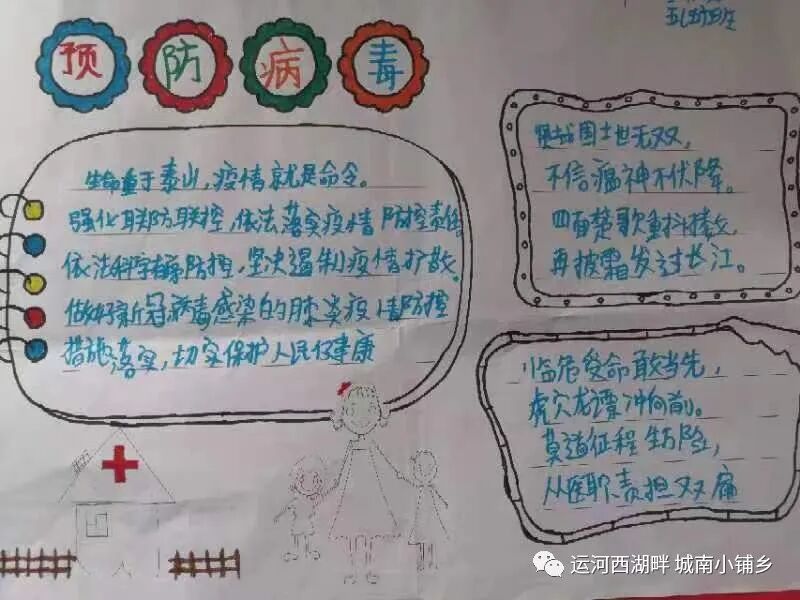 预防病毒
生命重于泰山，疫情就是命令。
强化联防联控，依法落实疫情防控责任
依法科学有序防控，坚决遏制疫情扩散。
做好新冠病毒感染的肺炎疫情防控
措施落实，切实保护人民健康
国士世无双，
不信瘟神不伏降。
四面楚歌重抖擞，
再披霜发过长江。
临危受命敢当先，
虎穴龙谭冲向前。
莫道征程生历险，
从医职责担双肩
运河西湖畔 城南小铺乡